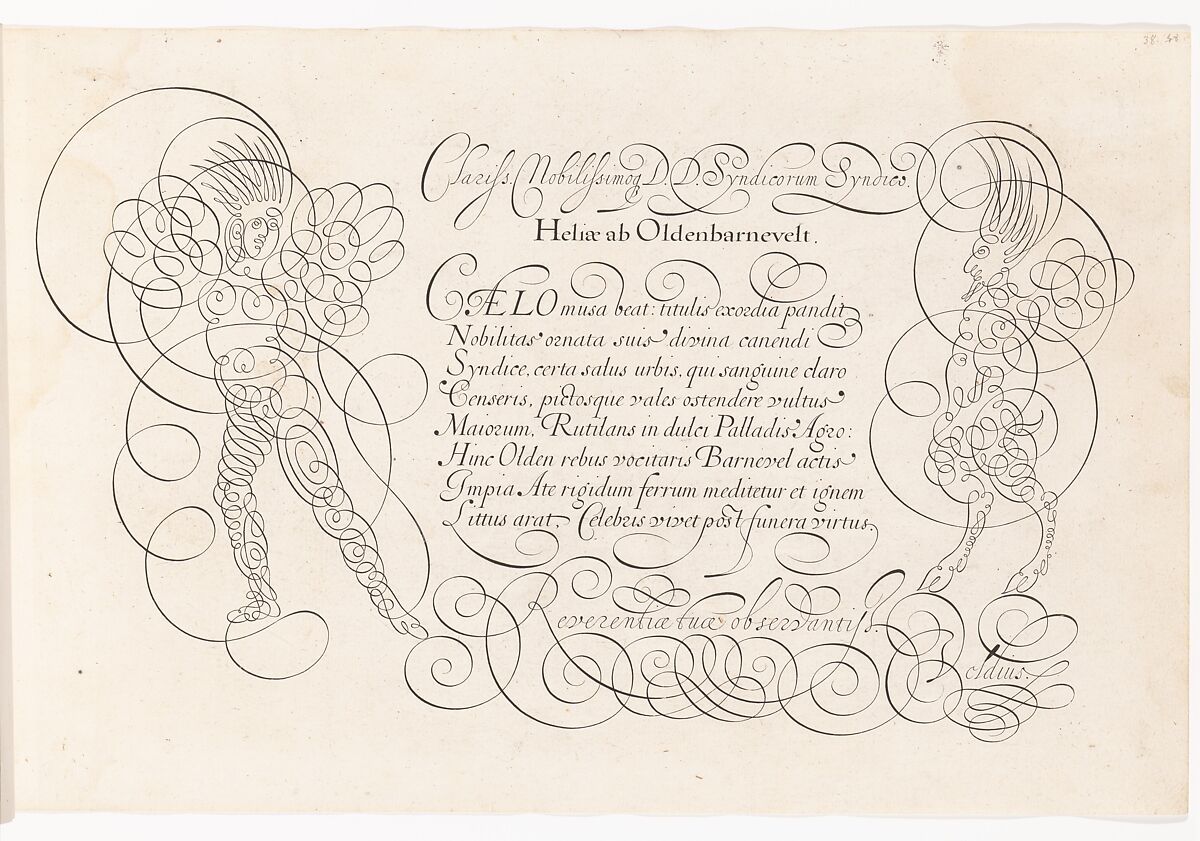 38. 48
Clariss. Nobilissimoq D. D. Syndicorum Syndico.
Heliæ ab Oldenbarnevelt.
CÆLO musa beat: titulis exordia pandit
Nobilitas ornata suis divina canendi
Syndice, certa salus urbis, qui sanguine claro
Censeris, pictosque vales ostendere vultus
Maiorum, Rutilans in dulci Palladis Agro:
Hinc Olden rebus vocitaris Barnevel actis
Impia Ate rigidum ferrum meditetur et ignem
Littus arat, Celebris vivet post funera virtus.
Reverentiæ tuæ observantiss.